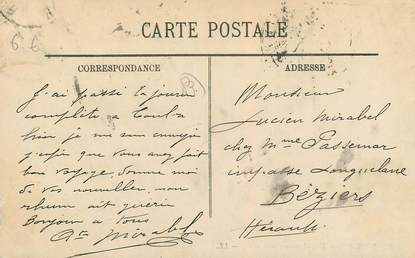 CARTE POSTALE
CORRESPONDANCE
ADRESSE
J'ai passé la journée
complète à
hier je me suis
que vous avez fait
bon voyage, donne moi
de vos nouvelles, mon
rhum est guéri
Bonjour à tous
Mirabel
Monsieur
Lucien Mirabel
chez Mme Passemar
impasse Longuelane
Béziers
Hérault